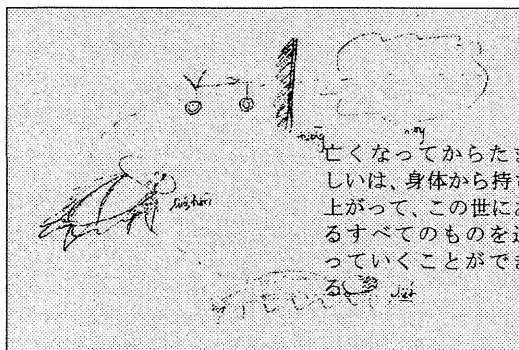 亡くなってからたま
しいは、身体から持ち
上がって、この世にあ
るすべてのものを通
っていくことができ
る